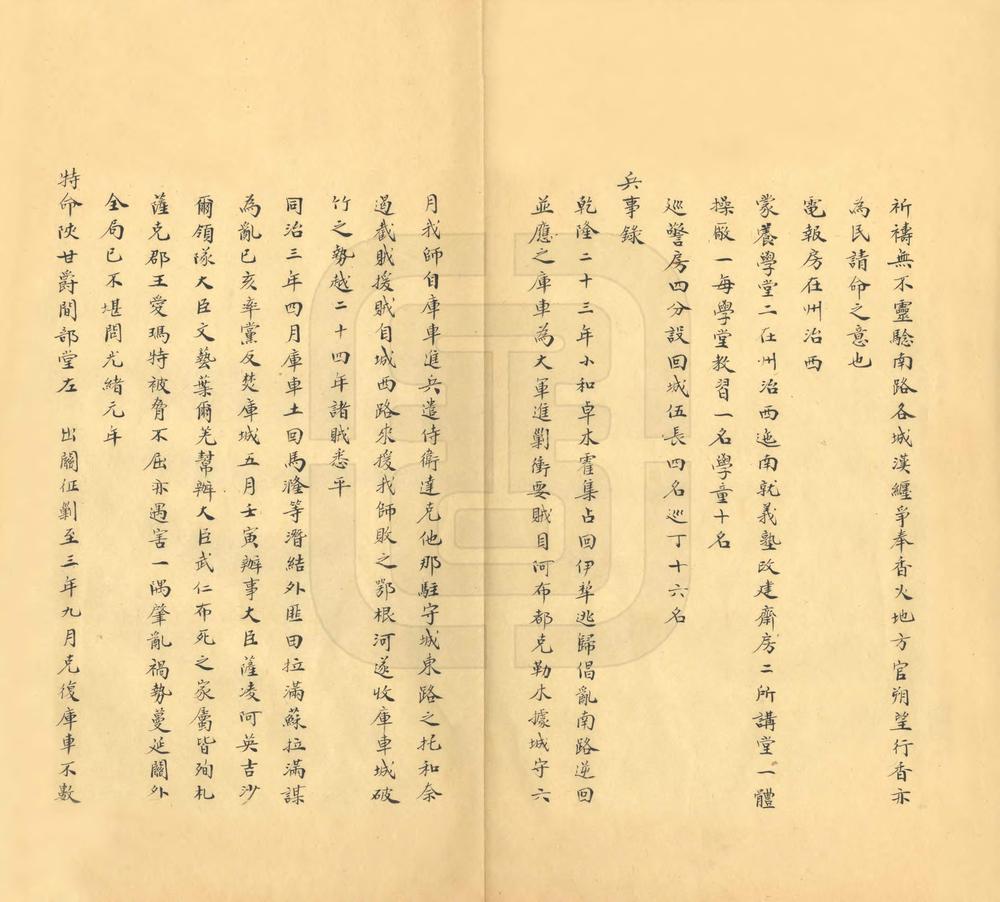 祈禱無不靈驗南路各城漢纏爭奉香火地方官朔望行香亦
為民請命之意也
電報房在州治西
蒙養學堂二在州治西迤南就義塾改建齋房二所講堂一體
操廠一每學堂教習一名學童十名
巡警房四分設回城伍長四名巡丁十六名
兵事錄
乾隆二十三年小和卓木霍集占回伊犂逃歸倡亂南路逆回
並應之庫車為大軍進勦衝要賊目阿布都克勒木據城守六
月我師自庫車進兵遣侍衛達克他那駐守城東路之托和奈
過截賊援賊自城西路來援我師敗之鄂根河遂收庫車城破
竹之勢越二十四年諸賊悉平
同治三年四月庫車土回馬漋等潛結外匪田拉滿蘇拉滿謀
為亂己亥率黨反焚庫城五月壬寅辦事大臣薩凌阿英吉沙
爾領隊大臣文藝葉爾羌幫辦大臣武仁布死之家屬皆殉札
薩克郡王愛瑪特被脅不屈亦遇害一隅肇亂禍勢蔓延關外
全局已不堪問光緒元年
特命陝甘爵閣部堂左 出關征勦至三年九月克復庫車不數